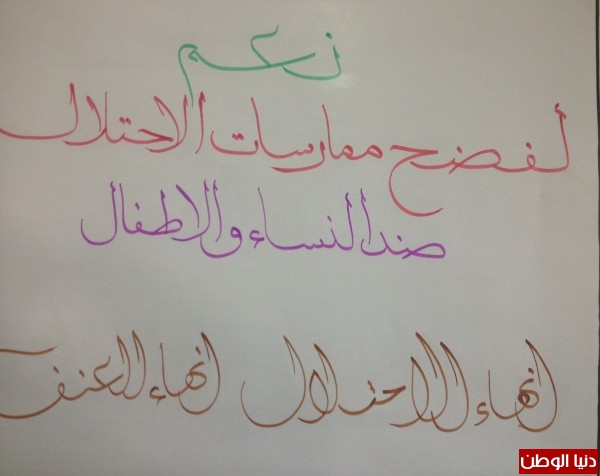 نعم
لفضح ممارسات الاحتلال
ضد النساء والاطفال
انهاء الاحتلال انهاء العنف
دنيا الوطن